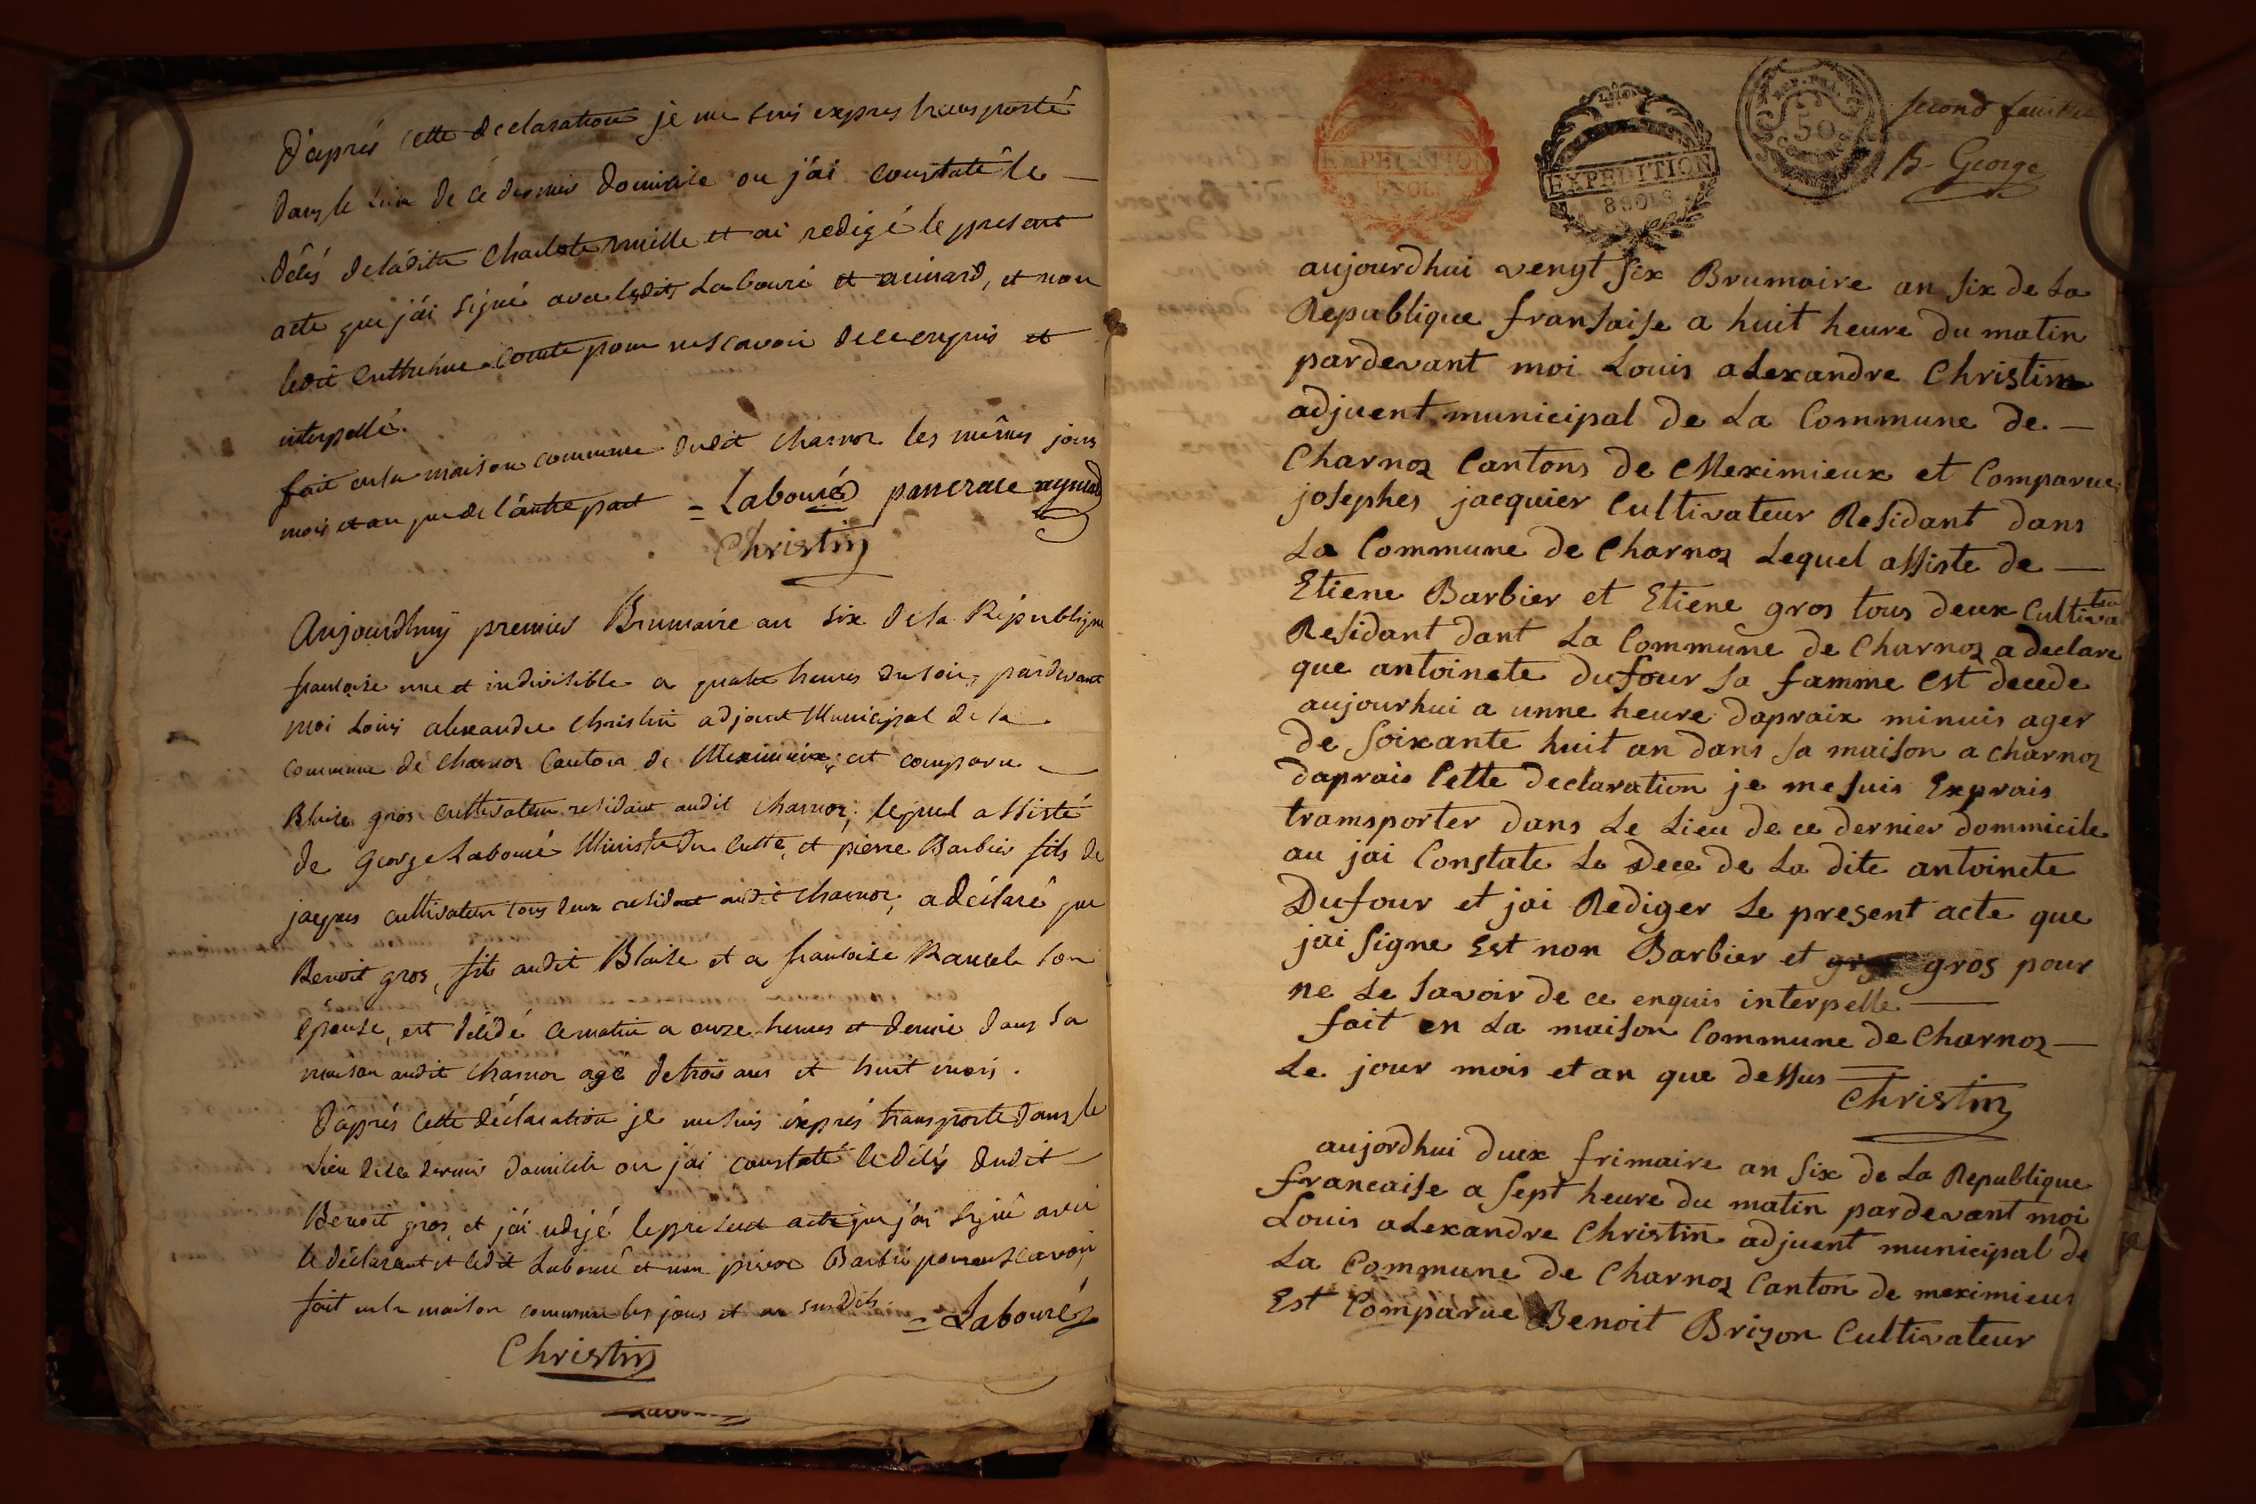 D'après cette declaration je me suis expres transporté
dans le lieu de ce dernier domicile ou j'ai constaté le —
décés de ladite Charlote mille et ai redigé le present
acte que j'ai signé avec lesdits Labouré et aimard, et non
ledit Cuthihue Comte pour ne scavoir de ce enquis et
interpellé.
fait en la maison commune dudit charnoz les mêmes jour
mois et an que de l'autre part = Labouré pancrace aymard
Christin
Aujourdhuy premier Brumaire an six de la République
francaise une et indivisible a quatre heures du soir, pardevant
moi Louis alexandre Christin adjoint Municipal de la
commune de charnoz Canton de Meximieux; est comparu —
Blaise gros cultivateur residant audit charnoz; lequel assisté
de George Labouré Ministre du culte, et pierre Barbier fils de
jacques cultivateur tous deux residant audit charnoz, a déclaré que
Benoit gros, fils audit Blaise et a francoise son
épouse, est décédé ce matin a onze heures et demie dans sa
maison audit charnoz agé de trois ans et huit mois.
D'après cette déclaration je me suis éxprés transporté dans le
lieu de ce dernier domicile ou j'ai constaté le décés dudit —
Benoit gros, et j'ai redigé le present acte que j'ai signé avec
le déclarant et ledit Labouré et non pierre Barbié pour ne scavoir,
fait en la maison commune les jours et an susdits. = Labouré
Christin
EXPEDITION
8 SOLS
EXPEDITION
8 SOLS
50
second feuillet
B. George
aujourdhui vengt six Brumaire an six de La
Republique fransaise a huit heure du matin
pardevant moi Louis aLexandre Christin
adjuent municipal de La Commune de —
Charnoz Cantons de Meximieux et Comparue
josephes jacquier Cultivateur Residant dans
La Commune de Charnoz Lequel assiste de —
Etiene Barbier et Etiene gros tous deux Cultivateu
Residant dant La Commune de Charnoz a declare
que antoinete dufour sa famme est decede
aujourhui a unne heure dapraix minuis ager
de soixante huit an dans sa maison a charnoz
daprais Cette declaration je me suis Exprais
transporter dans Le Lieu de ce dernier dommicile
au jai Constate Le Dece de La dite antoinete
Dufour et jai Rediger Le present acte que
jai signe Est non Barbier et gros gros pour
ne Le savoir de ce enquis interpelle —
fait en La maison Commune de Charnoz —
Le jour mois et an que dessus =
Christin
aujordhui duex frimaire an six de La Republique
francaise a sept heure du matin pardevant moi
Louis aLexandre Christin adjuent municipal de
La Commune de Charnoz Canton de meximieus
Est Comparue Benoit Brizon Cultivateur